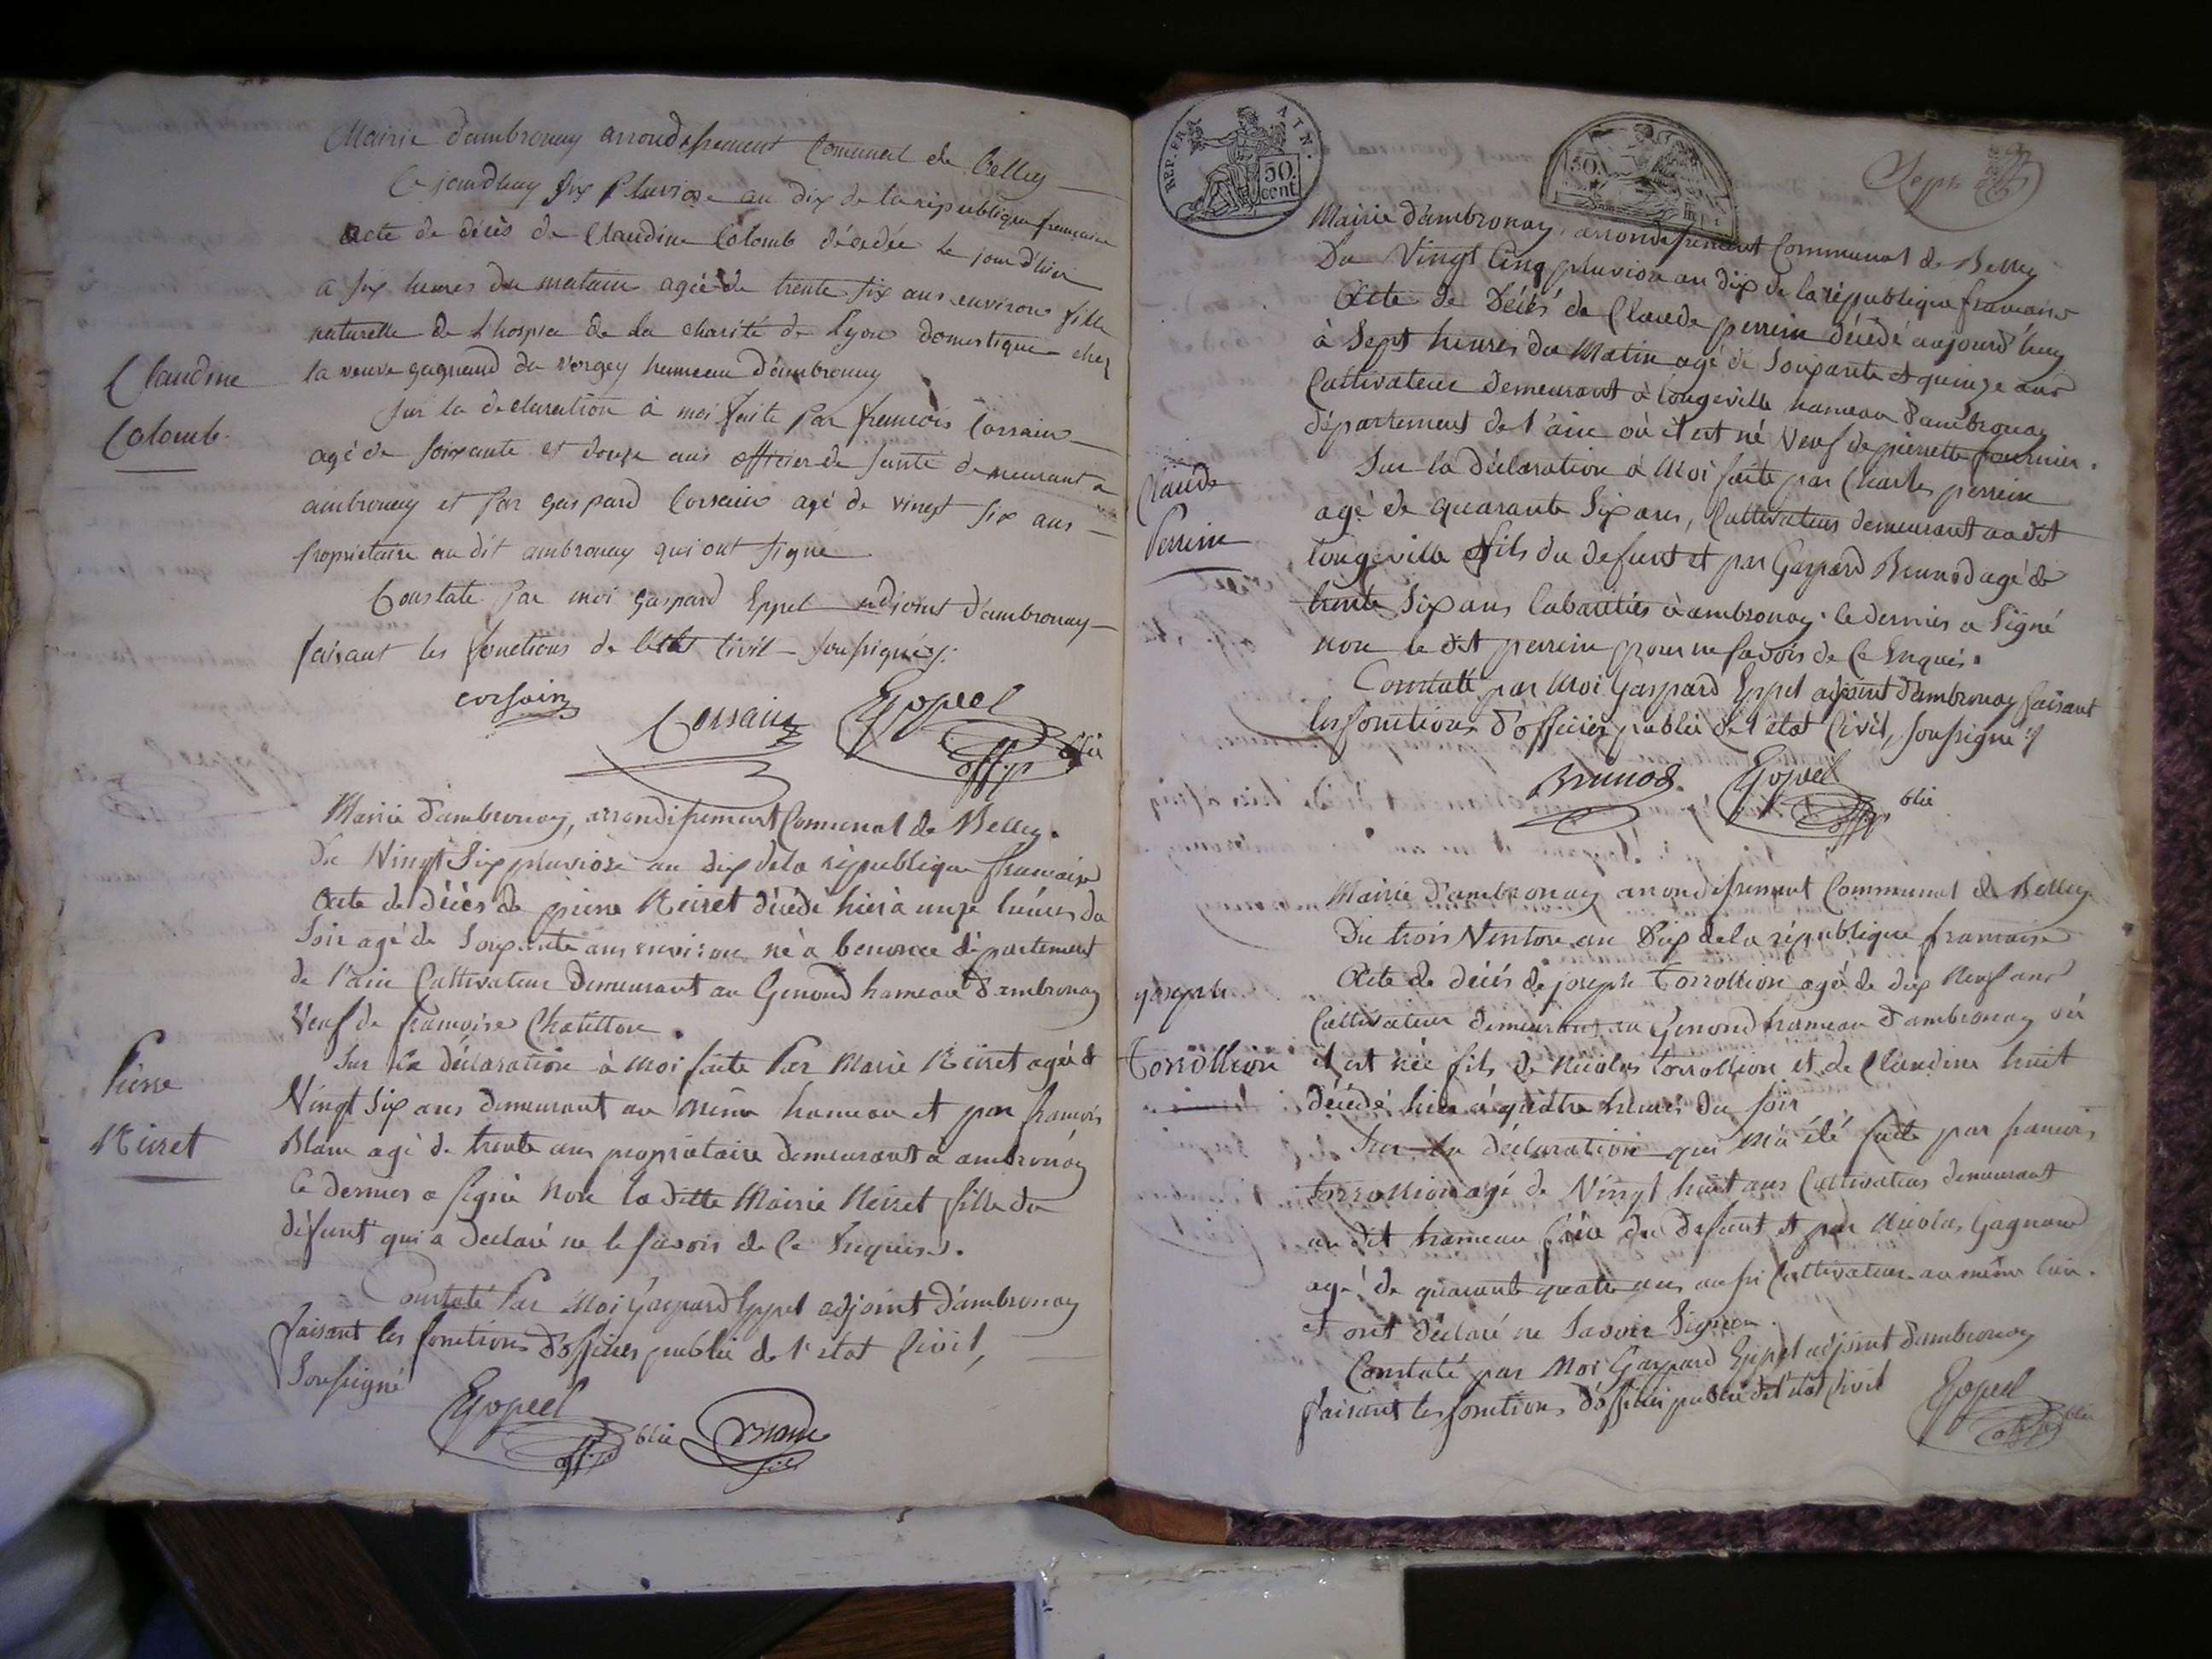 Mairie d'ambronay arrondissement Comunal de Belley
Ce jourdhuy six Pluviose an dix de la république francaise
Acte de décès de Claudine Colomb décédée le jour d'hier
a six heures du matain agée de trente six ans environ fille
naturelle de l'hospice de la charité de Lyon domestique chez
la veuve gagneud du vorgey hameau d'ambronay
Claudine
Colomb
Sur la declaration à moi faite Par francois Corsain
agé de soixante et douze ans officier de santé demeurant a
ambronay et par gaspard Corsain agé de vingt six ans
propriétaire au dit ambronay qui ont signé
Constaté Par moi gaspard Eppel adjoint d'ambronay
faisant les fonctions de civil soussigné
corsain
Corsain Eppel
off. p blic
Mairie d'ambronay, arrondissement Comunal de Belley.
Du Vingt Six pluviose an dix de la république francaise
Acte de décès de pierre Neiret décédé hier à unze heures du
Soir agé de Soixante ans environ né à benonce département
de l'ain Cultivateur demeurant au Genoud hameau d'ambronay
Veuf de francoise Chatillon.
Pierre
Neiret
Sur la déclaration à moi faite Par Marie Neiret agée de
Vingt Six ans demeurant au même hameau et par françois
Blanc agé de trente ans propriétaire demeurant à ambronay
Ce dernier a signé non la ditte Marie Neiret fille du
défunt qui a declaré ne le savoir de Ce Enquise.
Constaté Par Moi Gaspard Eppel adjoint d'ambronay
faisant les fonctions d'officier public de l'état Civil,
Soussigné
Eppel
off. p blic
REP. FRA
AIN.
50.
cent
50.
Sept
Mairie d'ambronay, arrondissement Communal de Belley
Du Vingt Cinq pluviose an dix de la république francaise
Acte de Décès de Claude perrein décédé aujourd'huy
à Sept heures du Matin agé de Soixante et quinze ans
Cultivateur demeurant à longeville hameau d'ambronay
département de l'ain où il est né Veuf de pierrette fournier.
Claude
Perrein
Sur la déclaration à Moi faite par Charles perrein
agé de quarante Six ans, Cultivateur demeurant au dit
longeville fils du defunt et par Gaspard Brunod agé de
trente Six ans Cabaretier à ambronay. le dernier a Signé
non le dit perrein pour ne savoir de Ce Enquis.
Constaté par Moi Gaspard Eppel adjoint d'ambronay faisant
les fonctions d'officier public de l'état Civil, soussigné
Brunod. Eppel
off. p blic
Mairie d'ambronay arrondissement Communal de Belley.
Du trois Ventose an Dix de la république francaise
Acte de décés de joseph Torrollion agé de dix Neuf ans
Cultivateur demeurant au Genoud hameau d'ambronay où
joseph
Torrollion
il est née fils de Nicolas torrollion et de Claudine huit
décédé hier à quatre heures du soir
Sur la déclaration qui M'a été faite par francois
torrollion agé de Vingt huit ans Cultivateur demeurant
au dit hameau frère du defunt et par Nicolas Gagneud
agé de quarante quatre ans aussi Cultivateur au même lieu.
et ont déclaré ne Savoir Signer.
Constaté par Moi Gaspard Eppel adjoint d'ambronay
faisant les fonctions d'officier public de l'état Civil
Eppel
off. p blic